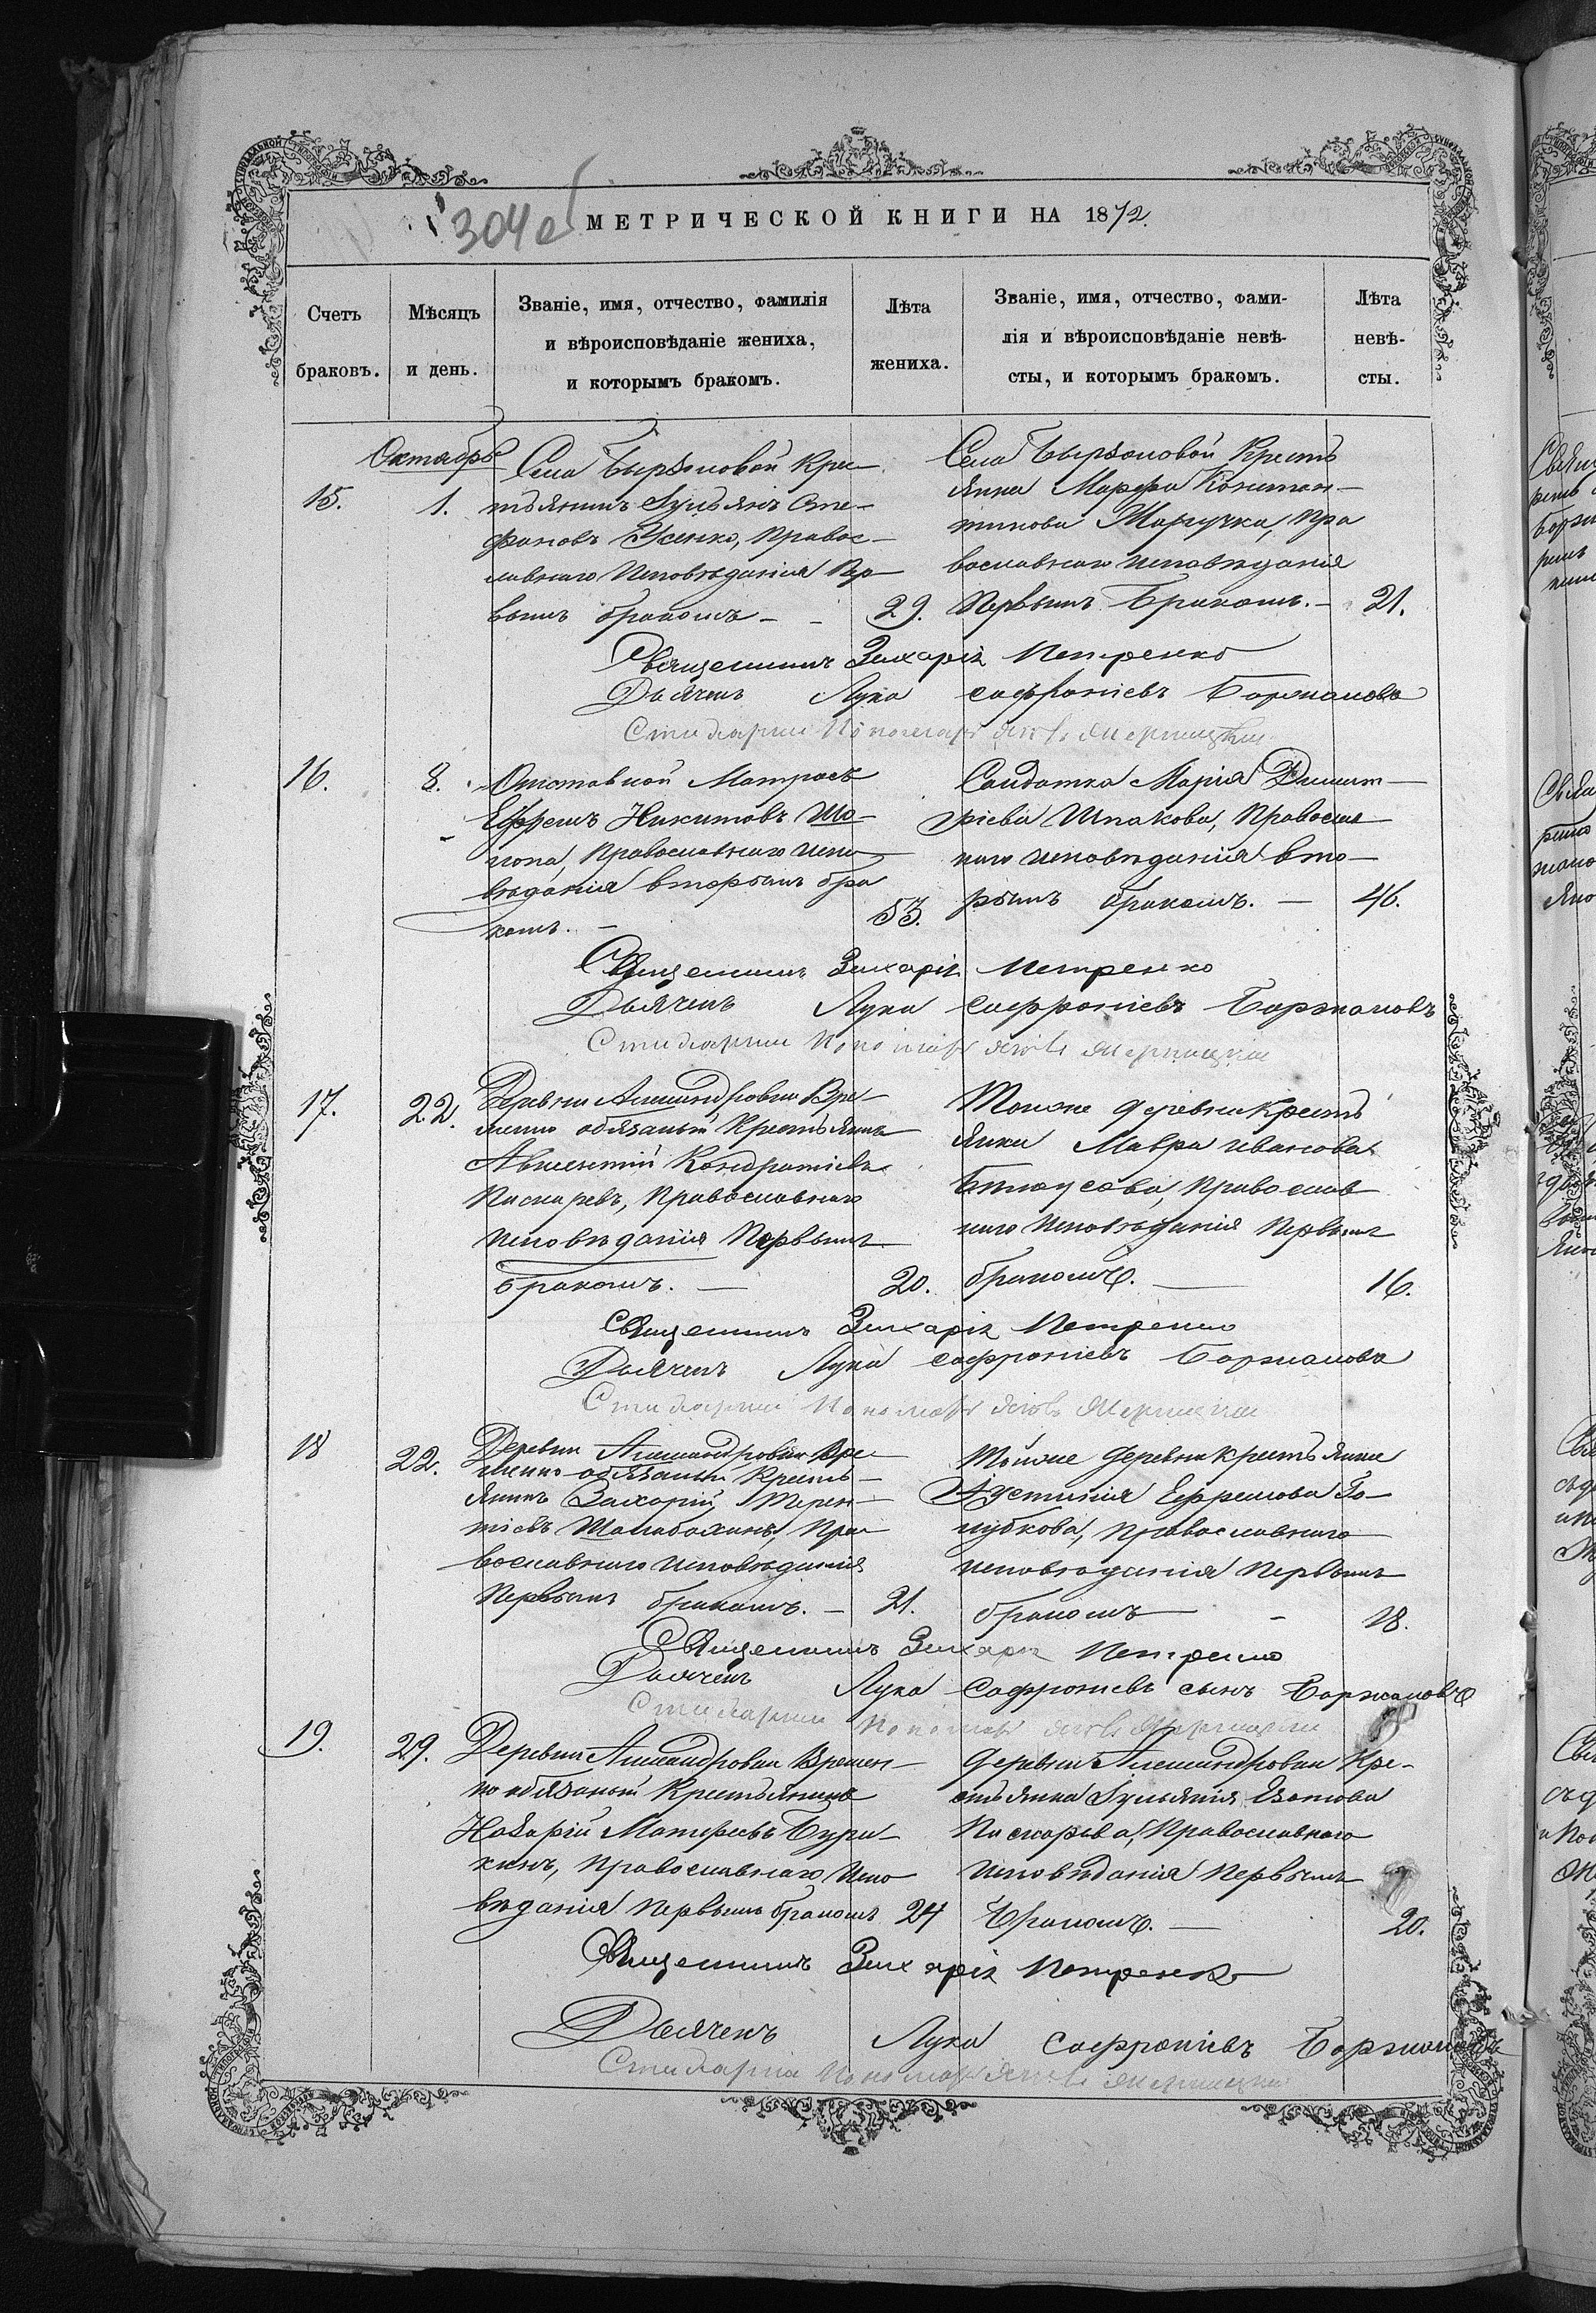 304 об
МЕТРИЧЕСКОЙ КНИГИ НА 1872.
Счетъ браковъ.
Мѣсяцъ и день.
Званіе, имя, отчество, фамилія
и вѣроисповѣданіе жениха,
и которымъ бракомъ.
Лѣта жениха.
Званіе, имя, отчество, фами-
лія и вѣроисповѣданіе невѣ-
сты, и которымъ бракомъ.
Лѣта невѣ-
сты.
Октябрь
15.
1.
Села Бырзоловой Крес
тьянинъ Іульянъ Сте-
фановъ Усенко, Правос-
лавнаго Исповѣданія Пер
вымъ бракомъ
29.
Села Бырзоловой Кресть
янка Марфа Констан-
тинова Маручка, Пра
вославнаго исповѣданія
Первымъ Бракомъ.
21.
Священникъ Захарія Петренко
Дьячекъ Лука Софроніевъ Боржановъ
Стихарный Пономарь Яковъ
16.
8.
Отставной Матросъ
Ефремъ Никитовъ Шо-
попа, Православнаго Испо
вѣданія вторымъ бра
комъ.
53.
Солдатка Марія Димит-
ріева Шпакова, Православ
наго исповѣданія вто-
рымъ бракомъ.
46.
Священникъ Захарія Петренко
Дьячекъ Лука Софроніевъ Боржановъ
Стихарный Пономарь Яковъ
17.
22.
Деревни Александровки Вре-
менно обязаный Крестьянинъ
Авксентій Кондратіевъ
Пискаревъ, Православнаго
Исповѣданія Первымъ
бракомъ.
20.
Тойже деревни Кресть
янка Мавра Иванова
Бѣлоусова, Православ
наго Исповѣданія Первымъ
бракомъ.
16.
Священникъ Захарія Петренко
Дьячекъ Лука Софроніевъ Боржановъ
Стихарный Пономарь Яковъ
18
22.
Деревни Александровки Вре-
менно-обязаный Кресть-
янинъ Захарій Терен-
тіевъ Шалабохинъ, Пра
вославнаго исповѣданія
Первымъ бракомъ.
21.
Тойже деревни крестьянка
Іустинія Ефремова Го-
лубкова, Православнаго
исповѣданія Первымъ
бракомъ
18.
Священникъ Захарія Петренко
Дьячекъ Лука Софроніевъ сынъ Боржановъ
Стихарный Пономарь Яковъ
19.
29.
Деревни Александровки Времен-
но обязаный Крестьянинъ
Назарій Матфеевъ Бури-
хинъ, Православнаго Испо
вѣданія Первымъ бракомъ
24
Деревни Александровки Кре-
стьянка Іульянія Изотова
Пискарева, Православнаго
Исповѣданія Первымъ
Бракомъ.
20.
Священникъ Захарія Петренко
Дьячекъ Лука Софроніевъ Боржановъ
Стихарный Пономарь Яковъ